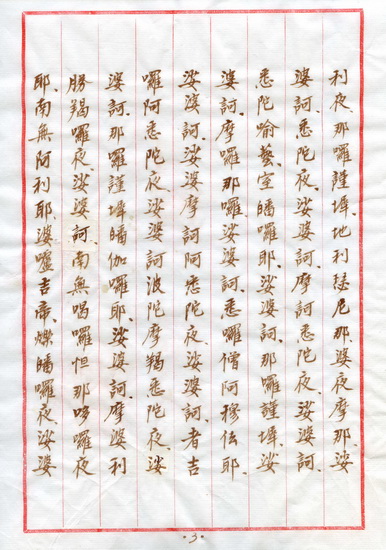 利夜、那囉謹墀、地利瑟尼那、婆夜摩那、娑
婆訶、悉陀夜、娑婆訶、摩訶悉陀夜、娑婆訶、
悉陀喻藝、室皤囉耶、娑婆訶、那囉謹墀、娑
婆訶、摩囉那囉、娑婆訶、悉囉僧阿穆佉耶、
娑婆訶、娑婆摩訶阿悉陀夜、娑婆訶、者吉
囉阿悉陀夜、娑婆訶、波陀摩羯悉陀夜、娑
婆訶、那囉謹墀皤伽囉耶、娑婆訶、摩婆利
勝羯囉夜、娑婆訶、南無喝囉怛那哆囉夜
耶、南無阿利耶、婆嚧吉帝、爍皤囉夜、娑婆
·3·